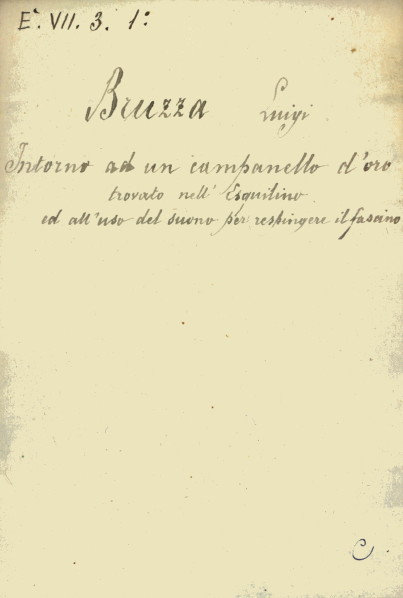 E. VII. 3. 1°
Bruzza Luigi
Intorno ad un campanello d'oro
trovato nell' Esquilino
ed all'uso del suono per respingere il fascino
C